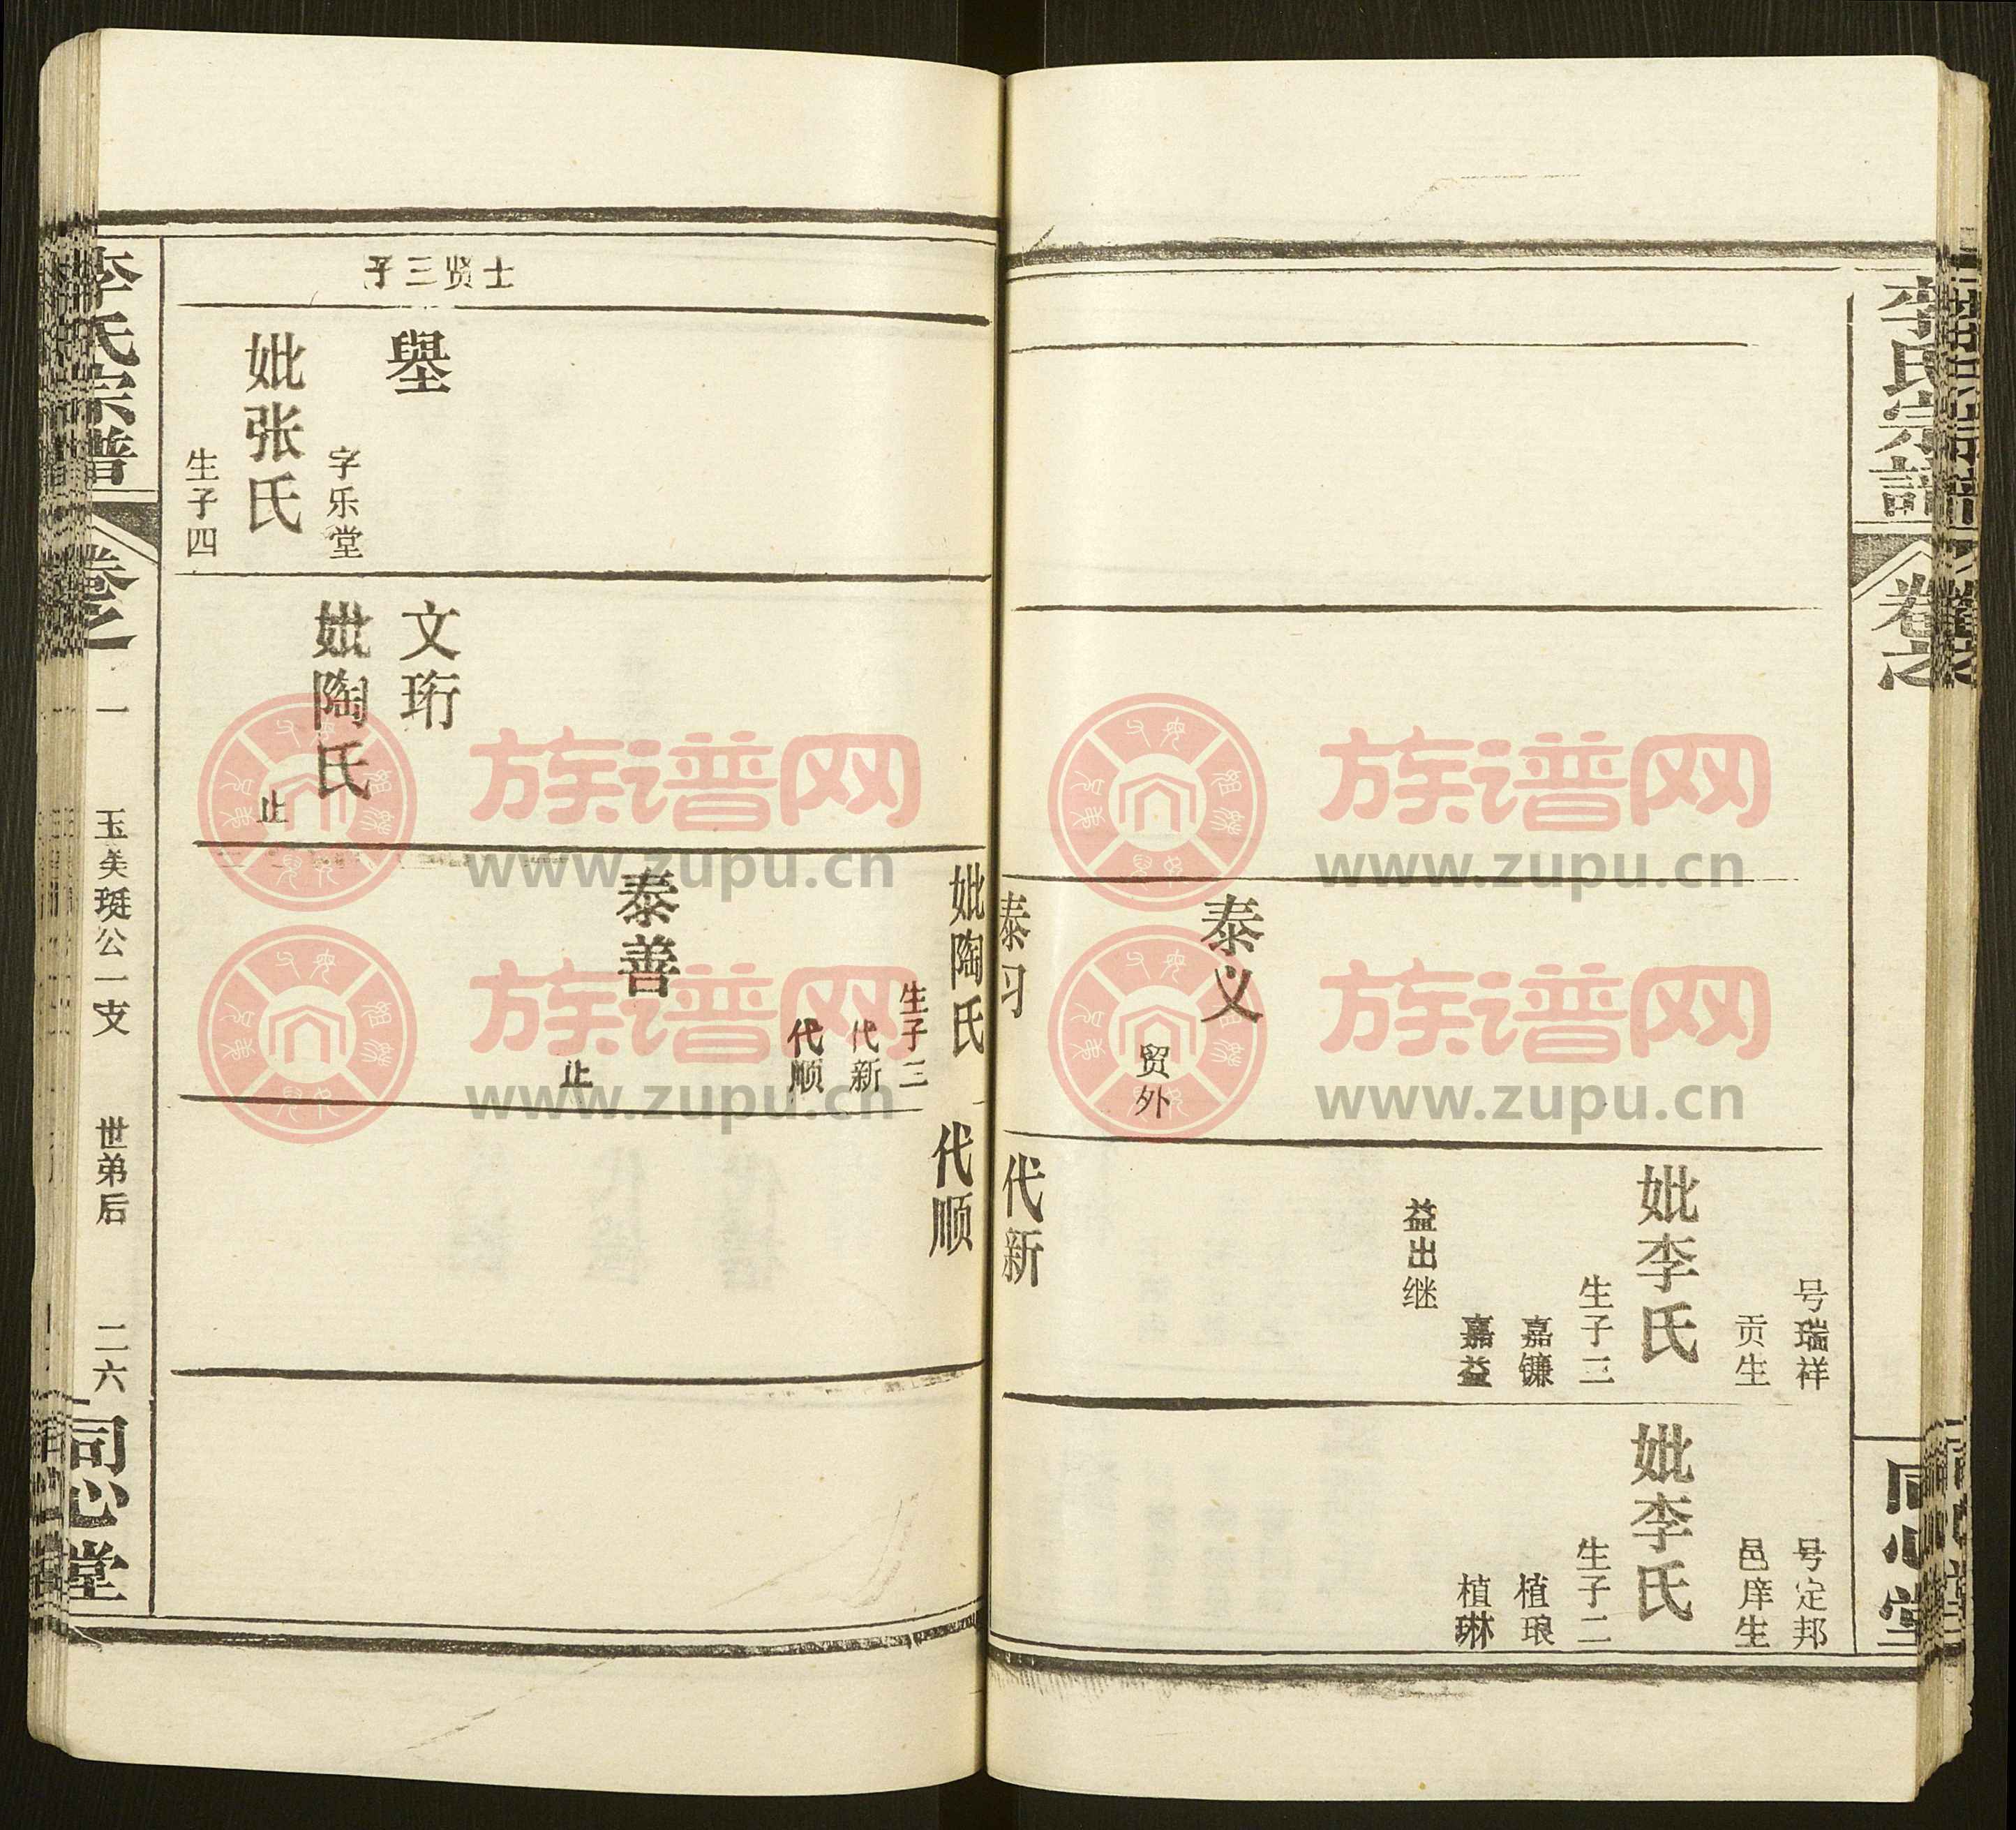 李氏宗譜
卷之
同心堂
泰义
贸外
泰习
号瑞祥
贡生
妣李氏
生子三
嘉镰
嘉益
益出继
代新
号定邦
邑庠生
妣李氏
生子二
植琅
植琳
士贤三子
舉
字乐堂
妣张氏
生子四
文珩
妣陶氏
止
妣陶氏
生子三
代新
代顺
泰善
止
代顺
李氏宗譜
卷之
一
公一支
世弟后
二六
同心堂
族谱网
www.zupu.cn
族谱网
www.zupu.cn
族谱网
www.zupu.cn
族谱网
www.zupu.cn